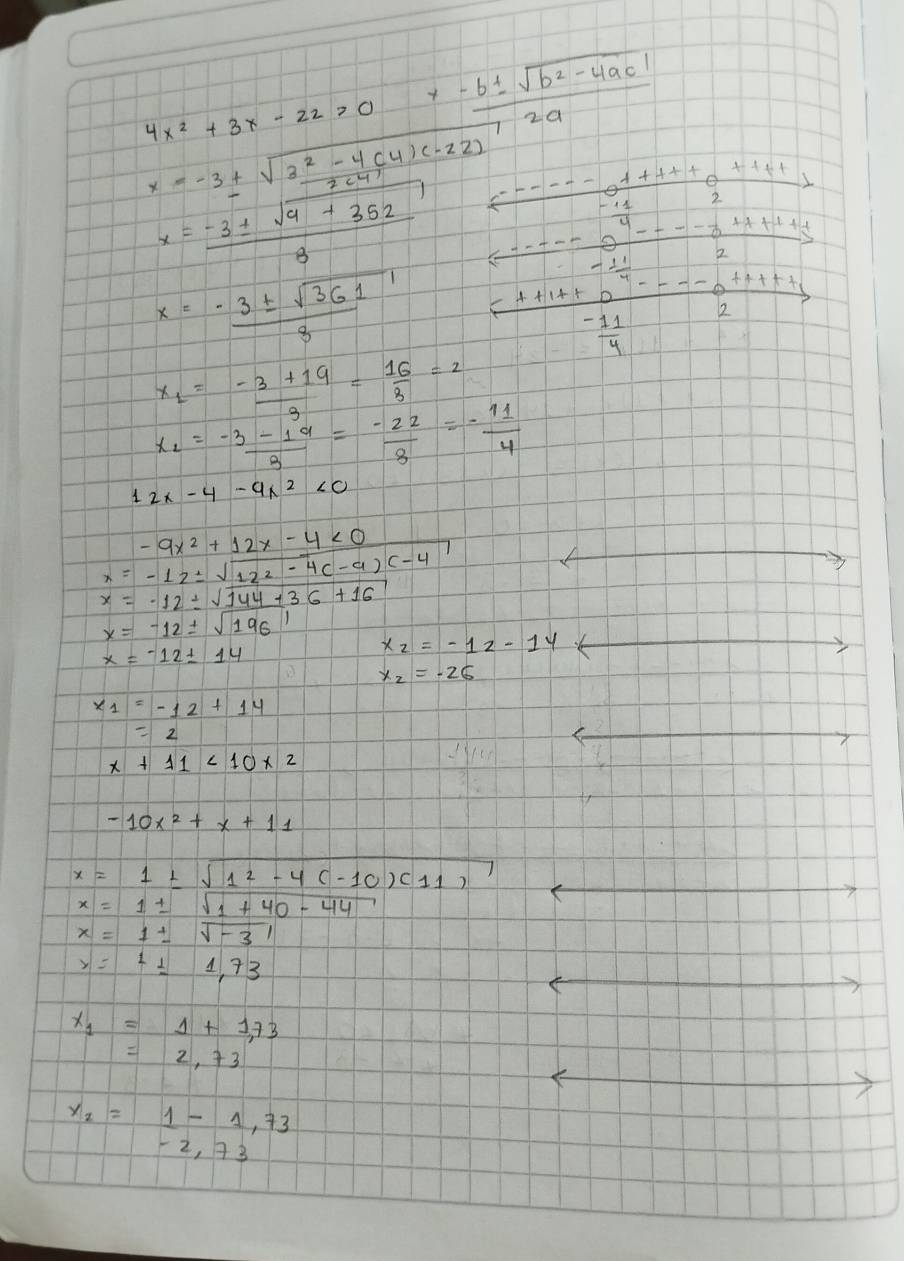 4x² + 3x - 22 > 0
x -b ± √b² - 4ac / 2a
x = -3 ± √3² - 4(4)(-22) / 2(4)
x = -3 ± √9 + 352 / 8
x = -3 ± √361 / 8
x₁ = -3 + 19 / 8 = 16/8 = 2
x₂ = -3 - 19 / 8 = -22/8 = -11/4
- - - - - - + + + + + + + + +
-11/4 2
- - - - - - - - - + + + + + +
-11/4 2
+ + + + + - - - - + + + + +
-11/4 2
12x - 4 - 9x² < 0
-9x² + 12x - 4 < 0
x = -12 ± √12² - 4(-9)(-4
x = -12 ± √144 + 36 + 16
x = -12 ± √196
x = -12 ± 14
x₂ = -12 - 14
x₂ = -26
x₁ = -12 + 14
= 2
x + 11 < 10x2
-10x² + x + 11
x = 1 ± √1² - 4(-10)(11)
x = 1 ± √1 + 40 - 44
x = 1 ± √-3
x = 1 ± 1,73
x₁ = 1 + 1,73
= 2,73
x₂ = 1 - 1,73
-2,73